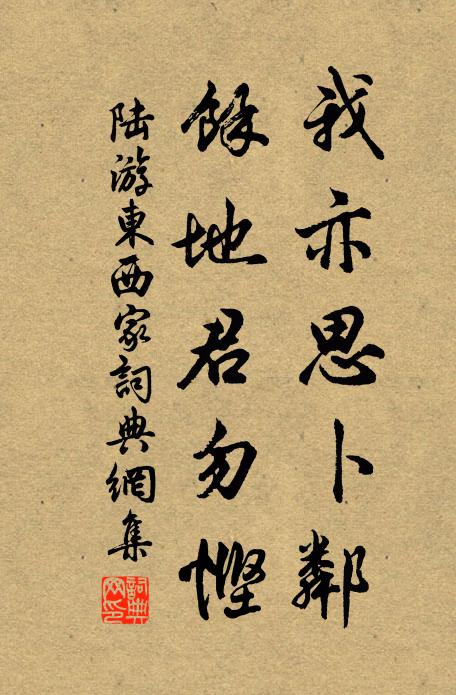 我亦思卜鄰
餘地君勿慳
陆游東西家詞典網集
詞典网印